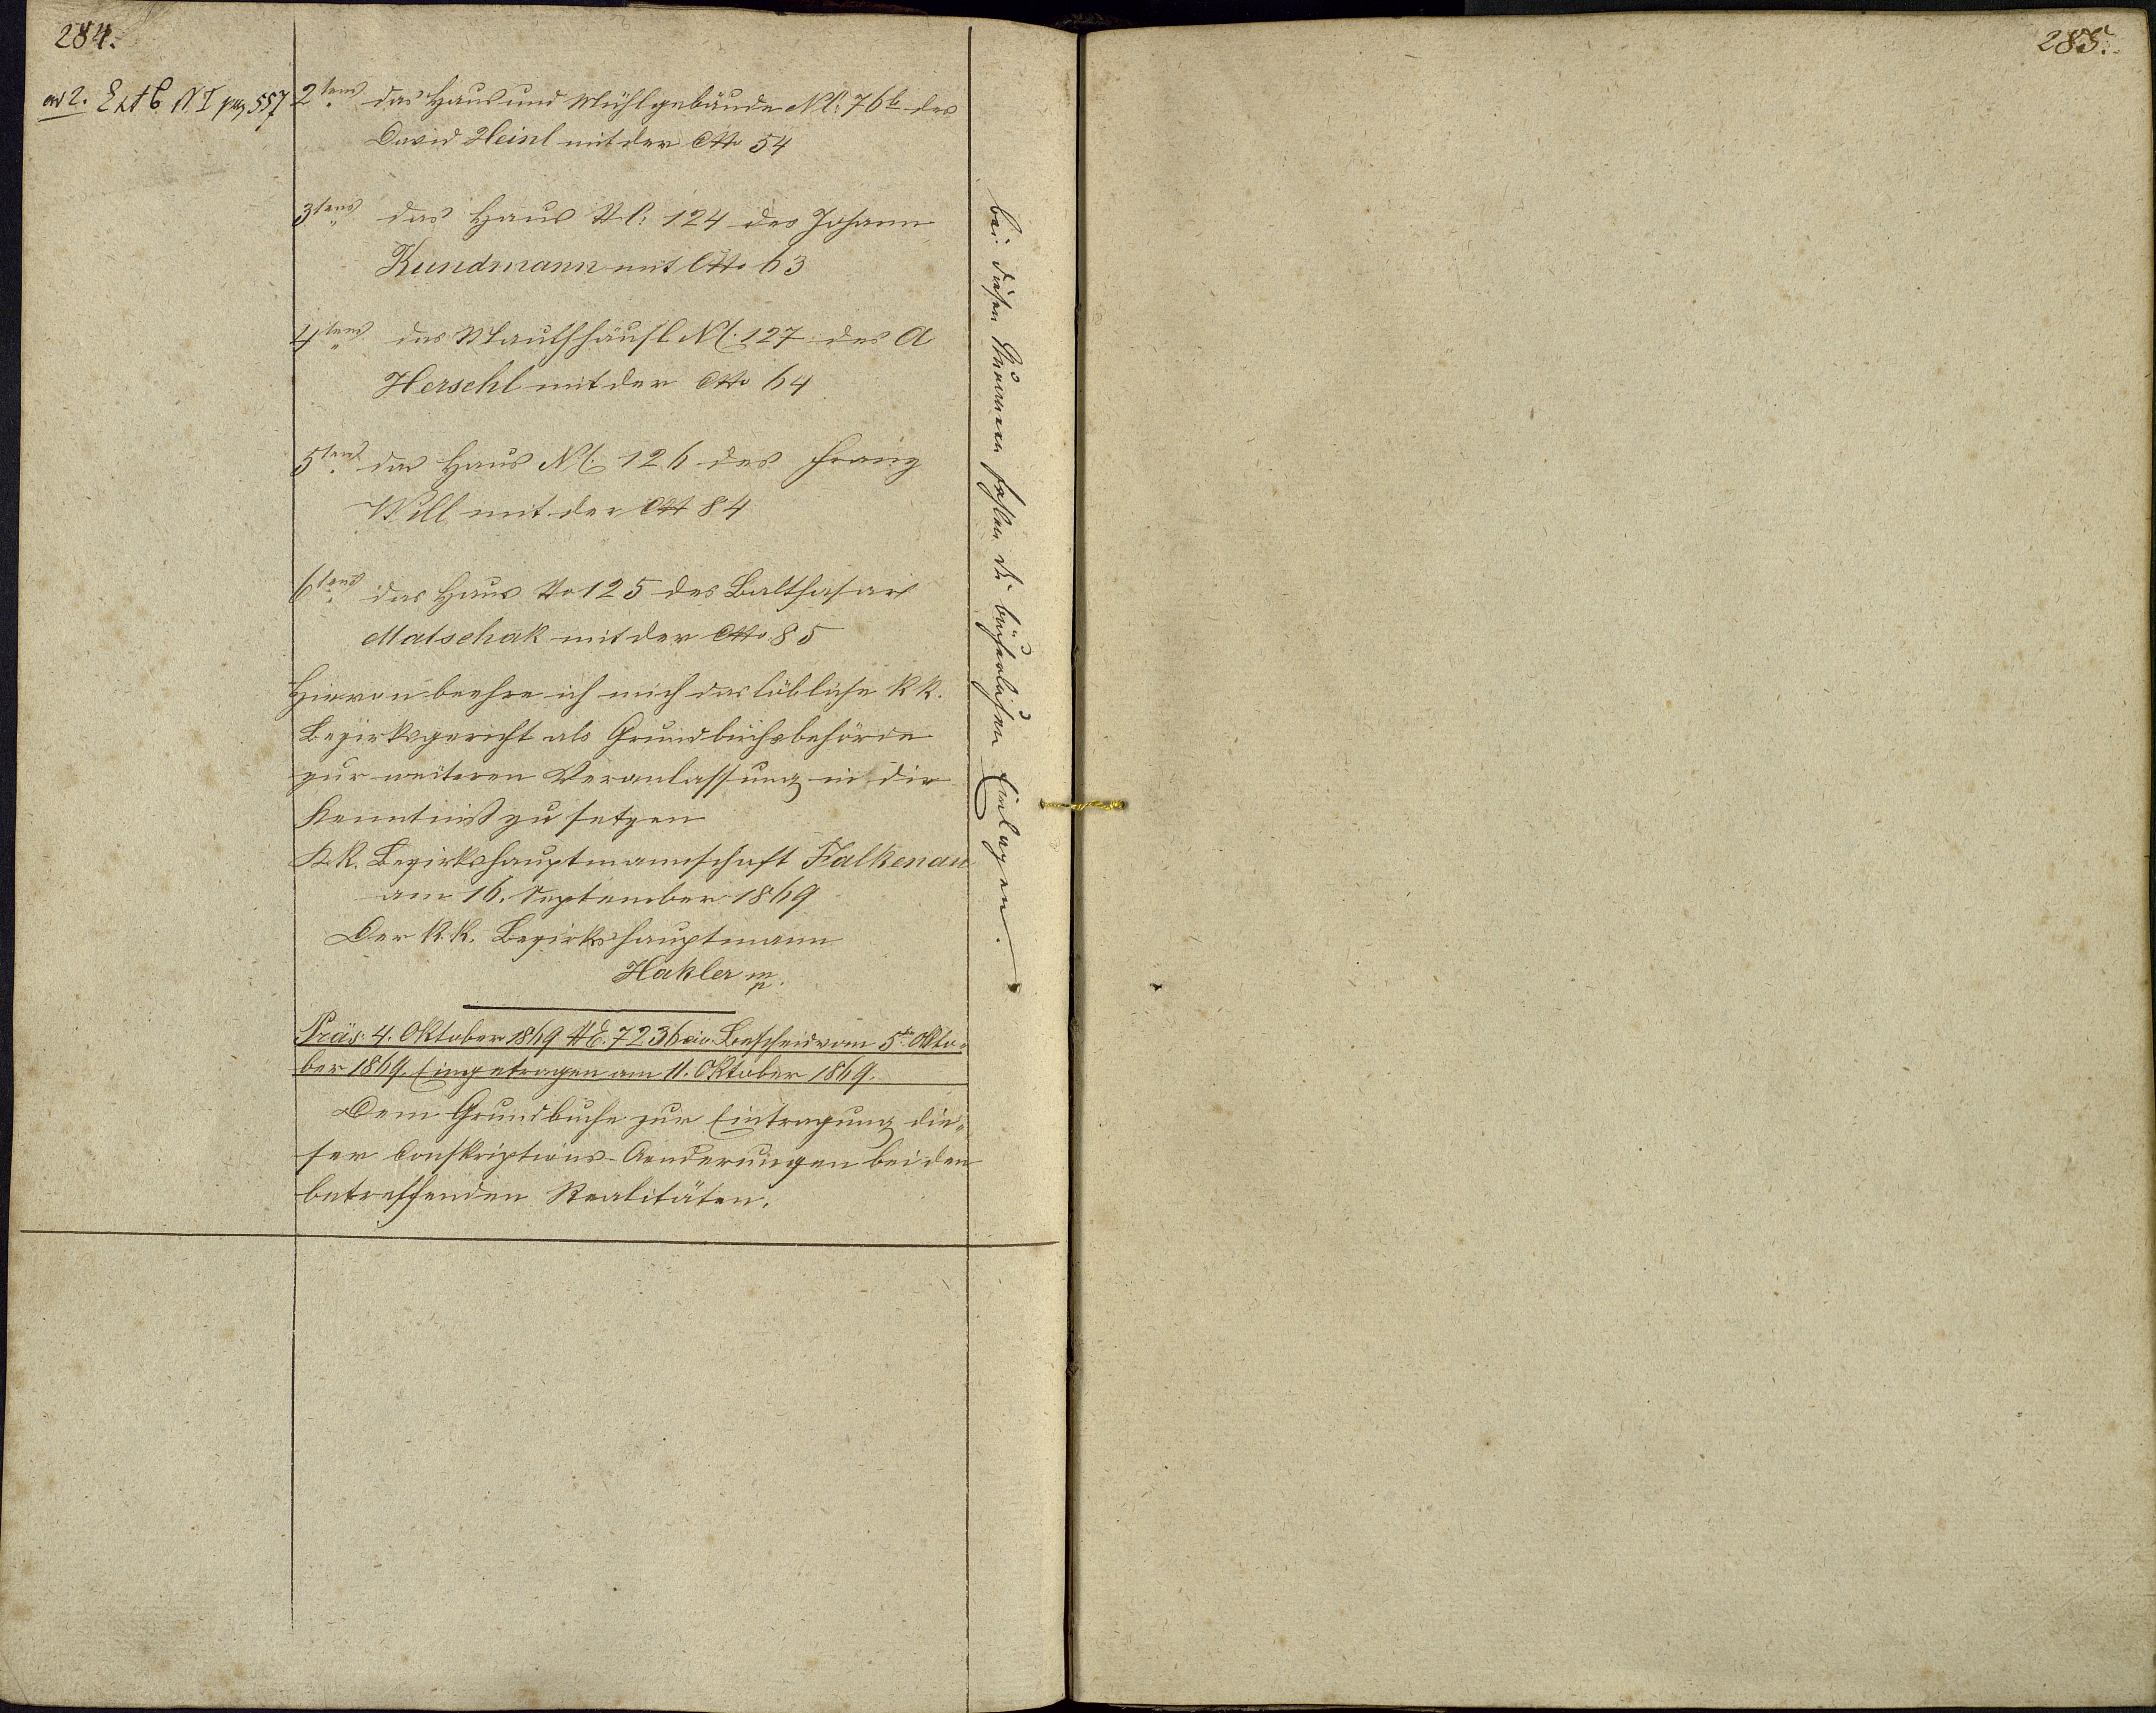 284.
ad 2. Extb. N I pag 557
2tens das Haus und Mühlgebäude NC: 76b des
David Heinl mit der Cto 54
3tens das Haus NC: 124 des Johann
Kundmann mit Cto 63
4tens das Mauthhäusl NC. 127 des A
Herschl mit der Cto 64
5tens das Haus NC. 126 des Franz
Will mit der Ct 84
6tens das Haus No 125 des Balthasar
Matschak mit der Cto 85
Hievon beehre ich mich das löbliche k k.
Bezirksgericht als Grundbuchsbehörde
zur weiteren Veranlassung in die
Kenntniß zu setzen
K.k. Bezirkshauptmannschaft Falkenau
am 16. September 1869
Der k. k. Bezirkshauptmann
Hakler mp.
Präs: 4. Oktober 1869 NE. 7236 civ. Bescheid vom 5ten Okto-
ber 1869. Eingetragen am 11. Oktober 1869.
Dem Grundbuche zur Eintragung die-
ser Conskriptions-Aenderungen bei den
betreffenden Realitäten.
bei diesen Nummern fehlen die bücherlichen Einlagen.
285.